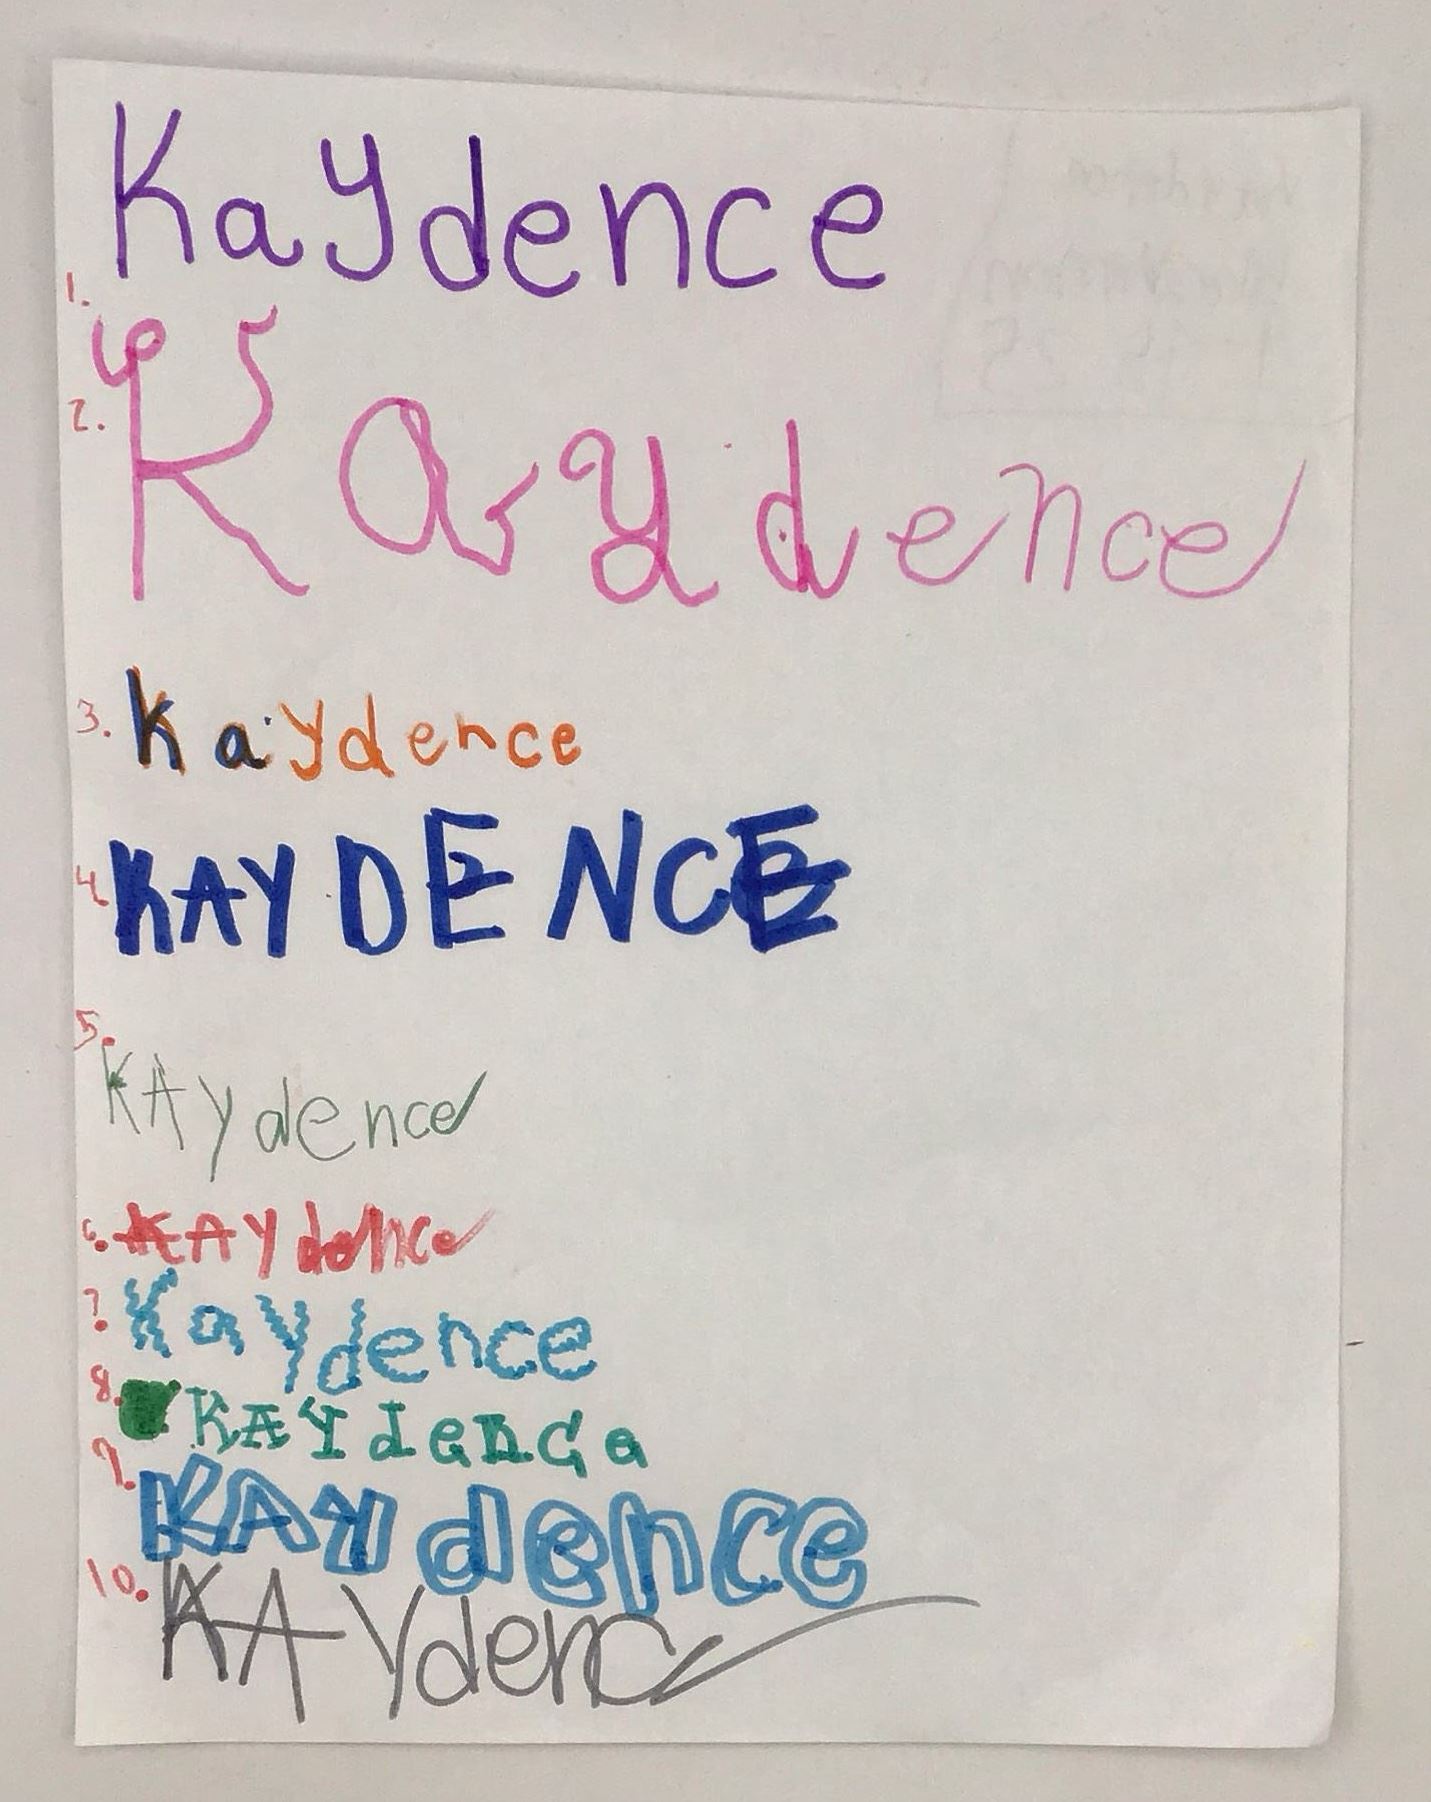 1. Kaydence
2. Kaydence
3. Kaydence
4. KAYDENCE
5. KAydence
6. KAYdence
7. Kaydence
8. KAYdence
9. KAYdence
10. KAYdence